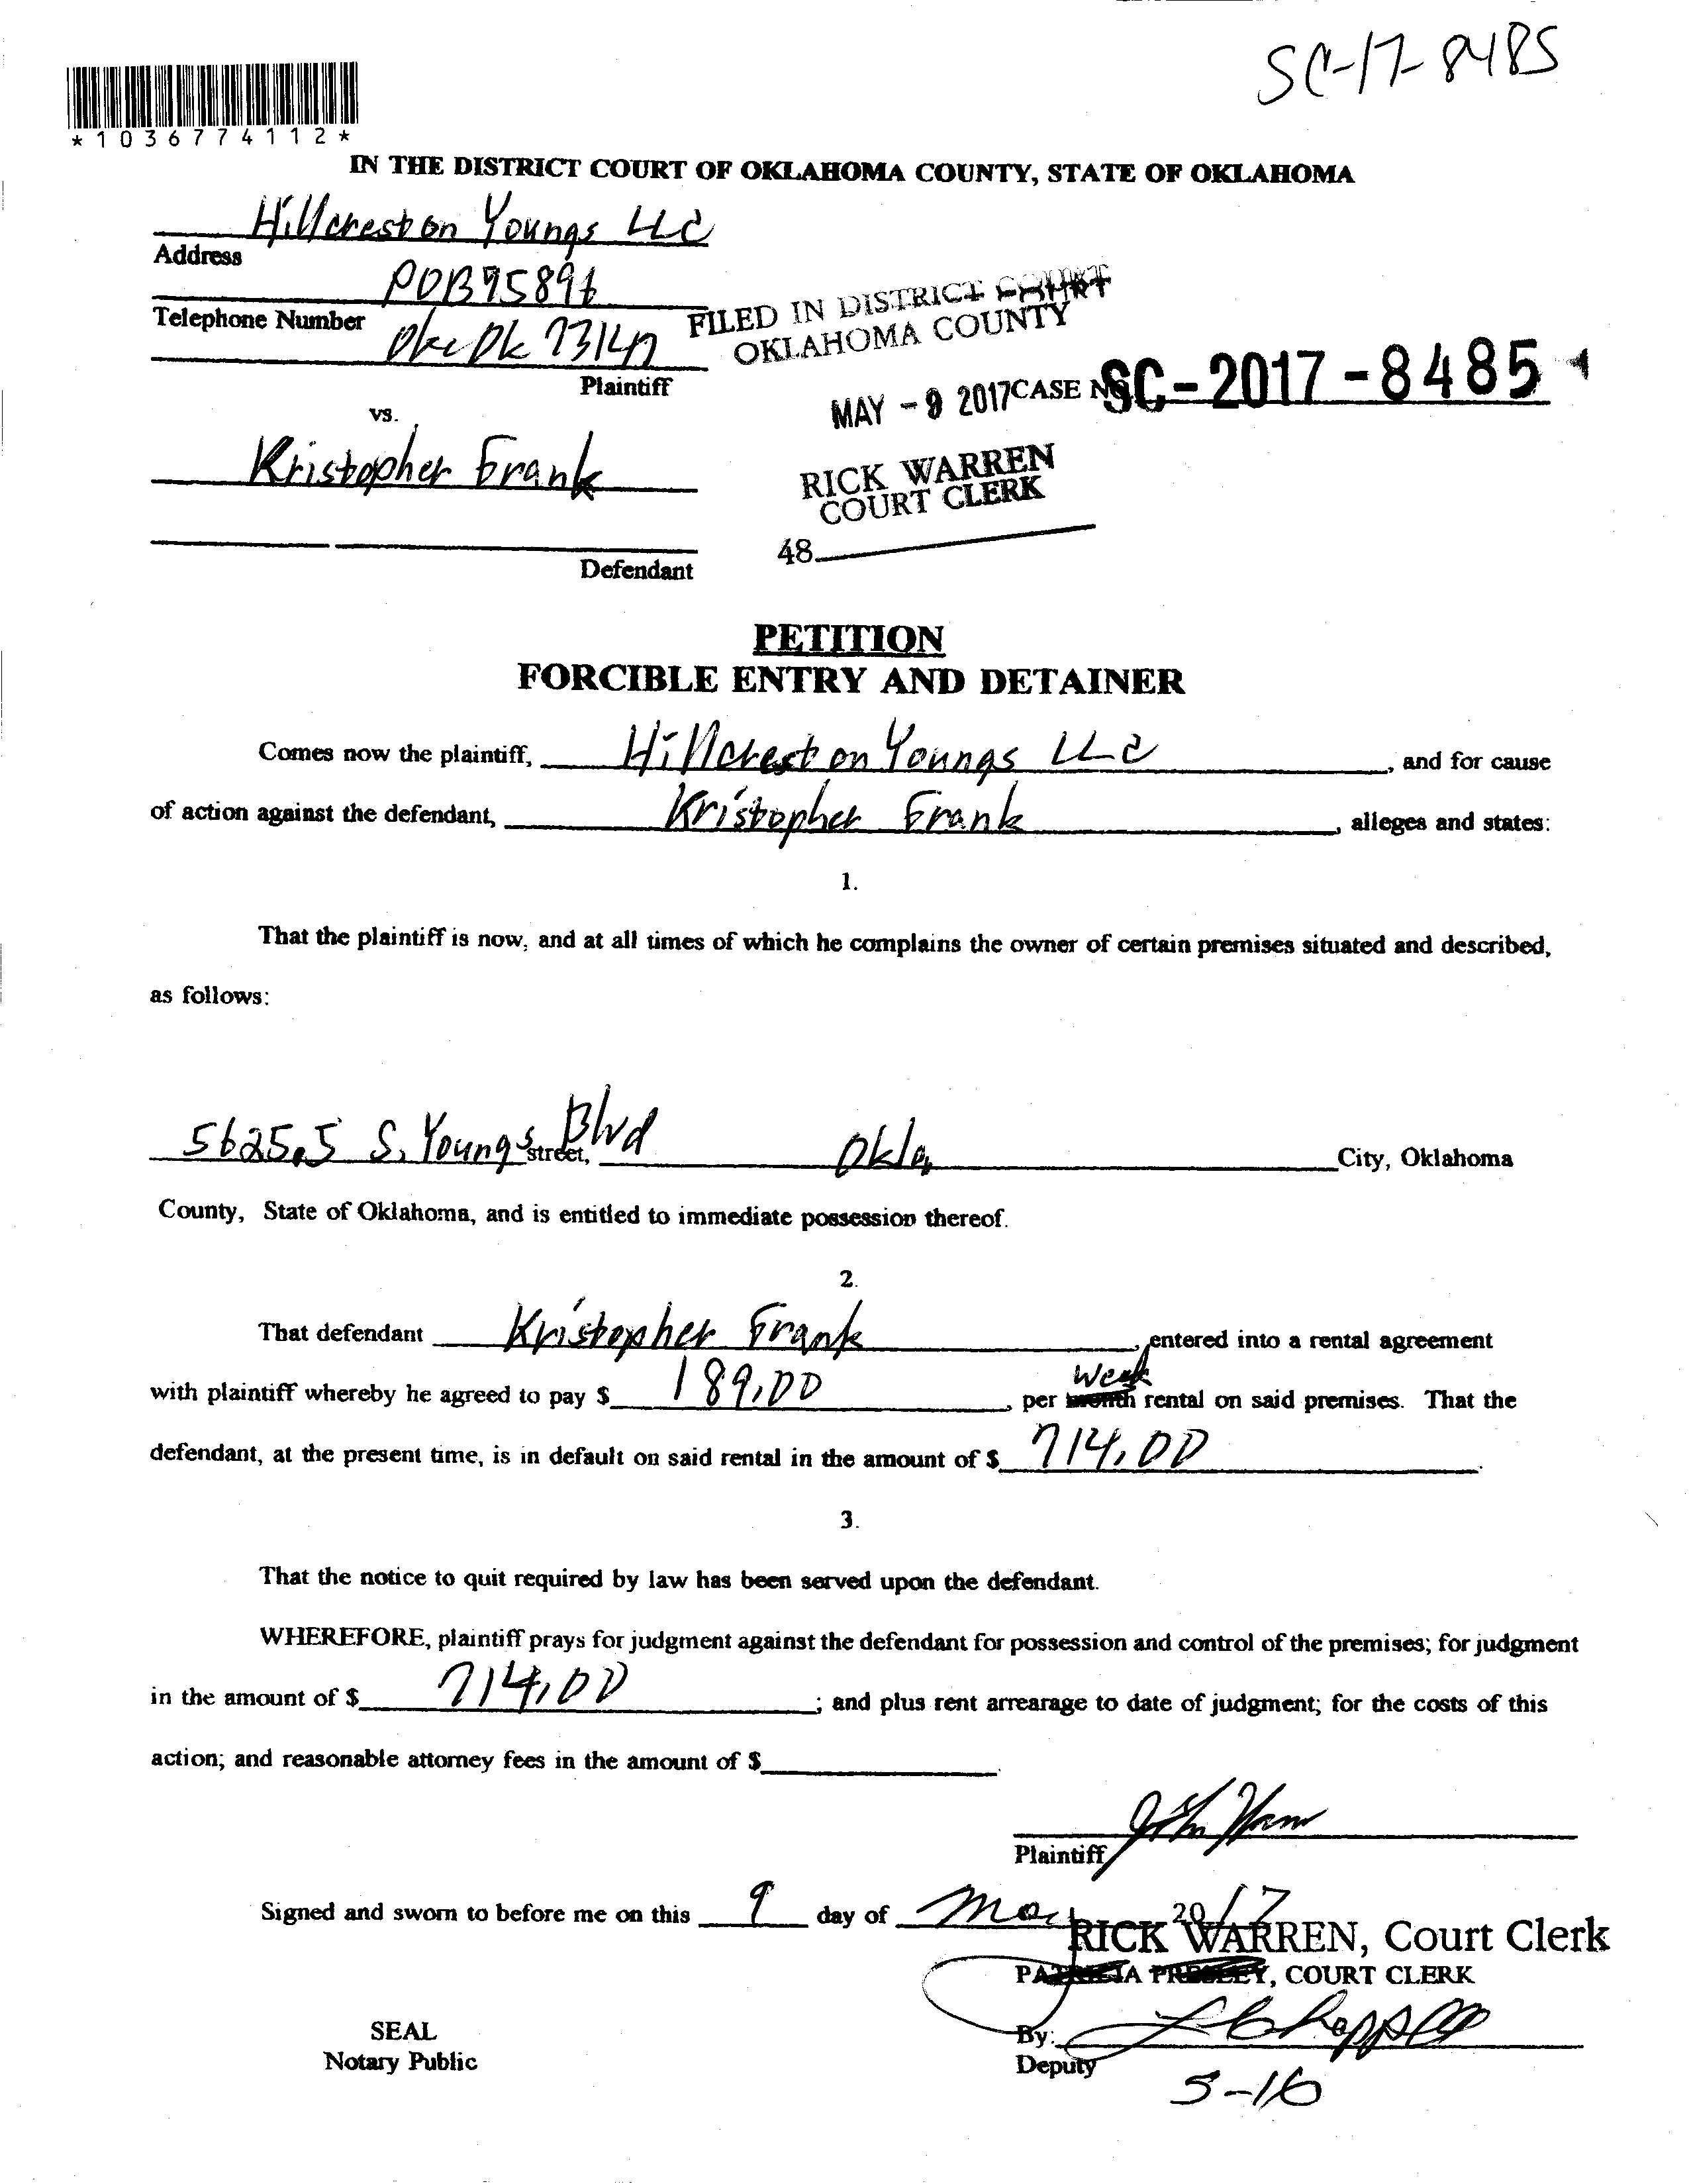 SC-17-8485
*1036774112*
IN THE DISTRICT COURT OF OKLAHOMA COUNTY, STATE OF OKLAHOMA
Hillcrest on Youngs LLC
Address
POB 95896
Telephone Number
Okc Ok 73147
Plaintiff
vs.
FILED IN DISTRICT COURT
OKLAHOMA COUNTY
MAY - 9 2017 CASE NO. SC-2017-8485
RICK WARREN
COURT CLERK
48
Kristopher Frank
Defendant
PETITION
FORCIBLE ENTRY AND DETAINER
Comes now the plaintiff, Hillcrest on Youngs LLC, and for cause
of action against the defendant, Kristopher Frank, alleges and states:
1.
That the plaintiff is now, and at all times of which he complains the owner of certain premises situated and described,
as follows:
5625.5 S. Youngs Blvd street, Okla, City, Oklahoma
County, State of Oklahoma, and is entitled to immediate possession thereof.
2.
That defendant Kristopher Frank, entered into a rental agreement
with plaintiff whereby he agreed to pay $ 189.00, per month week rental on said premises. That the
defendant, at the present time, is in default on said rental in the amount of $ 714.00.
3.
That the notice to quit required by law has been served upon the defendant.
WHEREFORE, plaintiff prays for judgment against the defendant for possession and control of the premises; for judgment
in the amount of $ 714.00; and plus rent arrearage to date of judgment; for the costs of this
action; and reasonable attorney fees in the amount of $
Plaintiff
Signed and sworn to before me on this 9 day of May 2017
RICK WARREN, Court Clerk
PATRICIA PRESLEY, COURT CLERK
By:
Deputy
SEAL
Notary Public
5-16